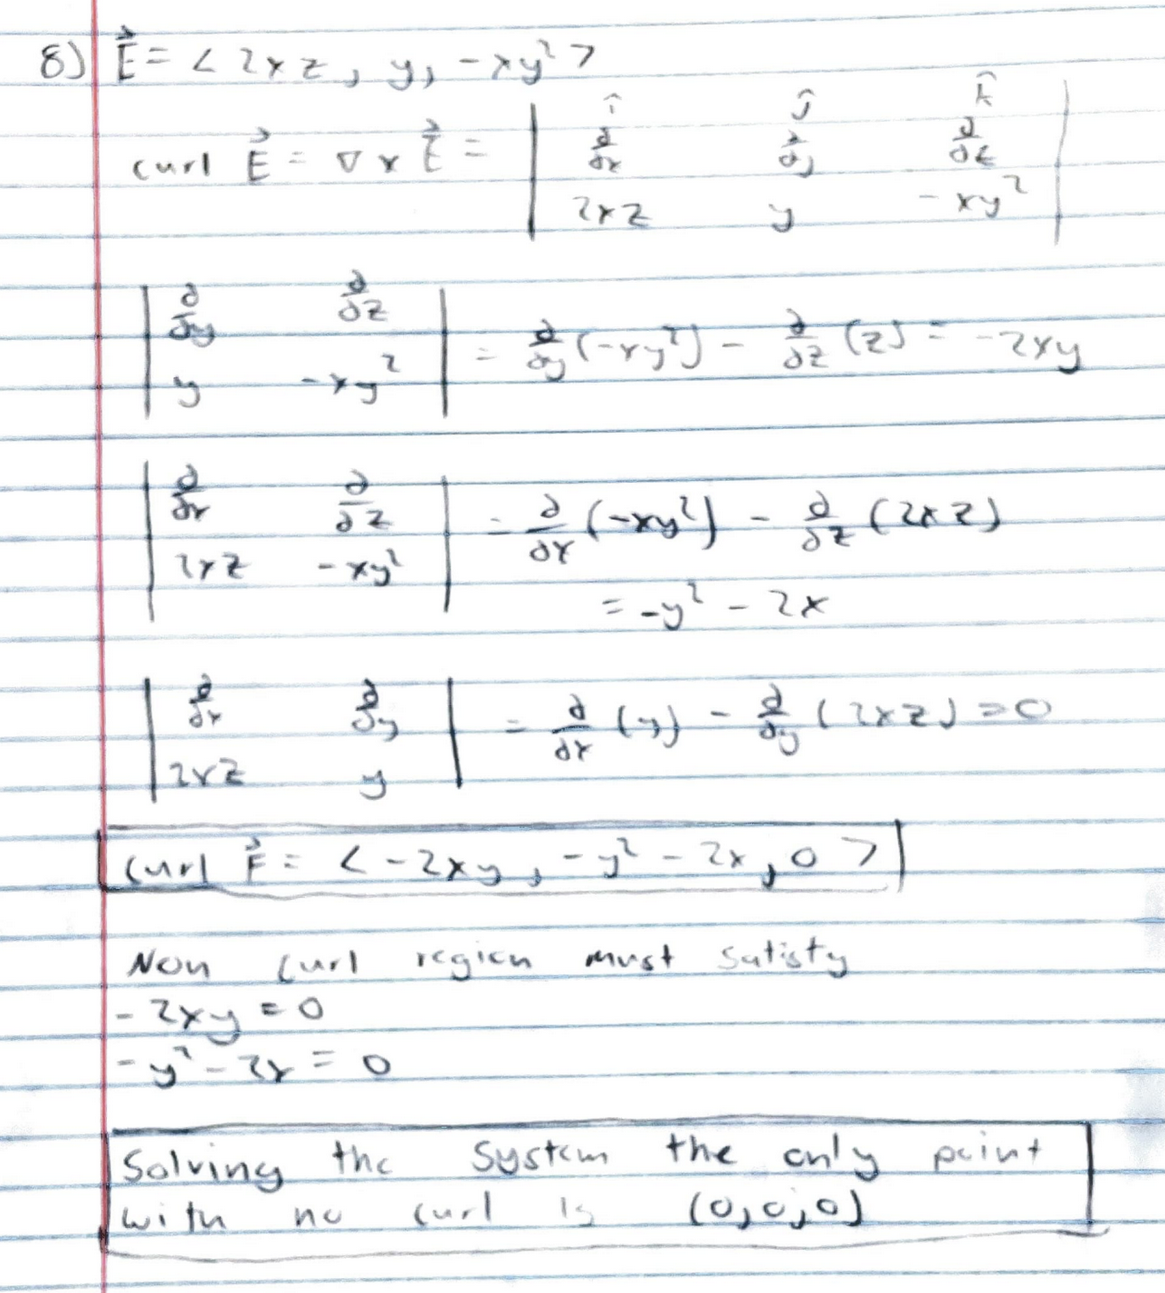 8) E⃗ = < 2xz, y, -xy² >
curl E⃗ = ∇ x E⃗ = | î ĵ k̂ |
| ∂/∂x ∂/∂y ∂/∂z |
| 2xz y -xy² |
| ∂/∂y ∂/∂z |
| y -xy² | = ∂/∂y (-xy²) - ∂/∂z (z) = -2xy
| ∂/∂x ∂/∂z |
| 2xz -xy² | = ∂/∂x (-xy²) - ∂/∂z (2xz)
= -y² - 2x
| ∂/∂x ∂/∂y |
| 2xz y | = ∂/∂x (y) - ∂/∂y (2xz) = 0
curl F⃗ = < -2xy, -y² - 2x, 0 >
Non curl region must satisfy
-2xy = 0
-y² - 2x = 0
Solving the system the only point
with no curl is (0,0,0)